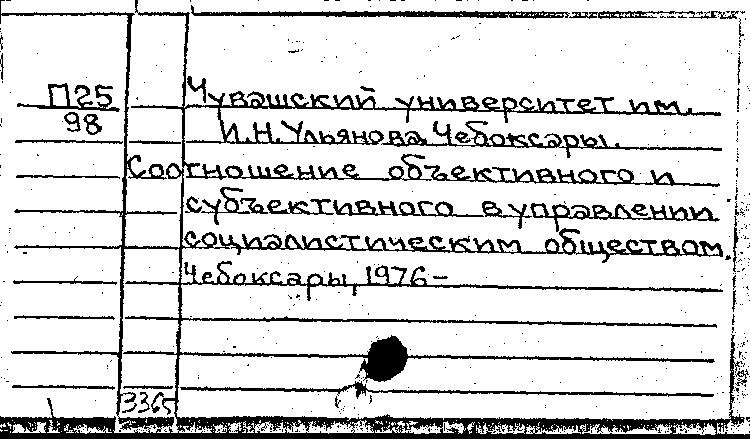 П25 Чувашский университет им.
98 И.Н.Ульянова, Чебоксары.
Соотношение объективного и
субъективного в управлении
социалистическим обществом.
Чебоксары, 1976-
3365